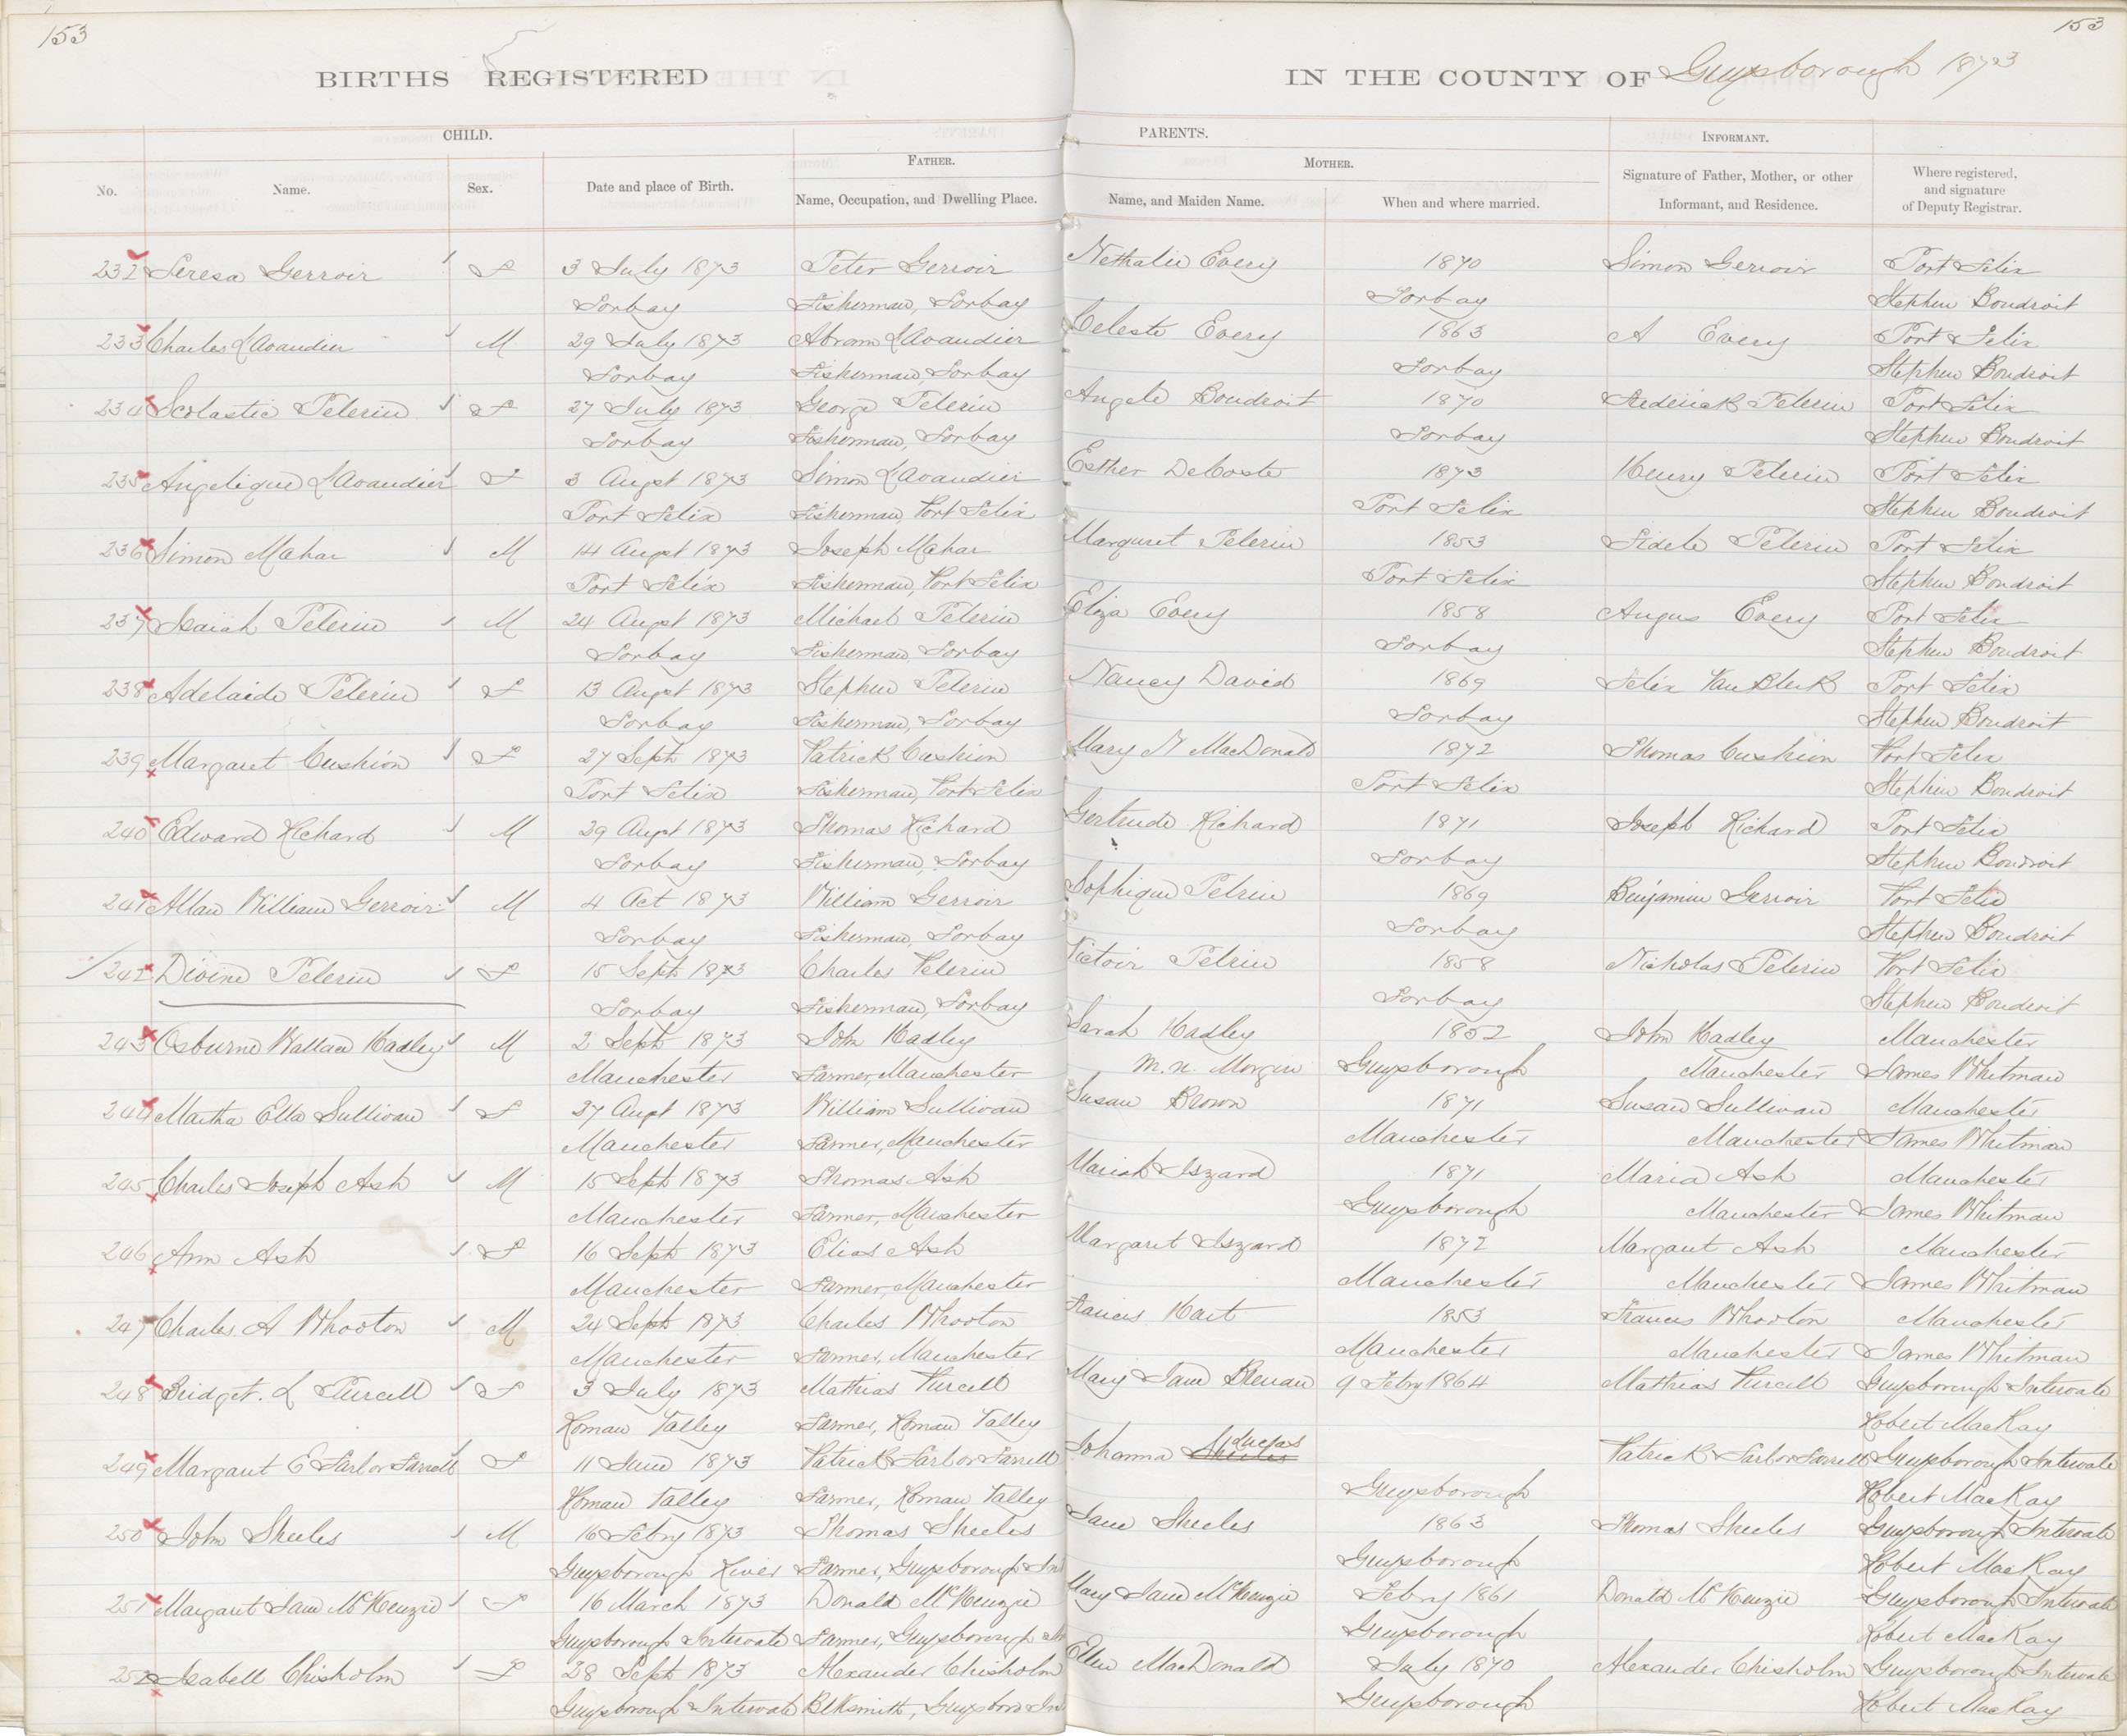 153
153
BIRTHS REGISTERED
IN THE COUNTY OF Guysborough 1873
CHILD.
PARENTS.
INFORMANT.
FATHER.
MOTHER.
No.
Name.
Sex.
Date and place of Birth.
Name, Occupation, and Dwelling Place.
Name, and Maiden Name.
When and where married.
Signature of Father, Mother, or other
Informant, and Residence.
Where registered,
and signature
of Deputy Registrar.
232 Teresa Gerroir F 3 July 1873 Peter Gerroir Nethalie Every 1870 Simon Gerroir Port Felix
Torbay Fisherman, Torbay Torbay Stephen Boudroit
233 Charles LAvandier M 29 July 1873 Abram LAvandier Celeste Every 1863 A Every Port Felix
Torbay Fisherman, Torbay Torbay Stephen Boudroit
234 Scolastic Pelerin F 27 July 1873 George Pelerin Angele Boudroit 1870 Frederick Pelerin Port Felix
Torbay Fisherman, Torbay Torbay Stephen Boudroit
235 Angelique LAvandier F 3 Augst 1873 Simon LAvandier Esther DeCoste 1873 Henry Pelerin Port Felix
Port Felix Fisherman, Port Felix Port Felix Stephen Boudroit
236 Simon Mahar M 14 Augst 1873 Joseph Mahar Marguret Pelerin 1853 Fidele Pelerin Port Felix
Port Felix Fisherman, Port Felix Port Felix Stephen Boudroit
237 Isaiah Pelerin M 24 Augst 1873 Michael Pelerin Eliza Every 1858 Angus Every Port Felix
Torbay Fisherman, Torbay Torbay Stephen Boudroit
238 Adelaide Pelerin F 13 Augst 1873 Stephen Pelerin Nancy David 1869 Felix Port Felix
Torbay Fisherman, Torbay Torbay Stephen Boudroit
239 Margaret Cushion F 27 Sept 1873 Patrick Cushion Mary MacDonald 1872 Thomas Cushion Port Felix
Port Felix Fisherman, Port Felix Port Felix Stephen Boudroit
240 Edward Richard M 29 Augst 1873 Thomas Richard Gertrude Richard 1871 Joseph Richard Port Felix
Torbay Fisherman, Torbay Torbay Stephen Boudroit
241 Allan William Gerroir M 4 Oct 1873 William Gerroir Sophique Pelrin 1869 Benjamin Gerroir Port Felix
Torbay Fisherman, Torbay Torbay Stephen Boudroit
242 Divine Pelerin F 15 Sept 1873 Charles Pelerin Victoir Pelrin 1858 Nicholas Pelerin Port Felix
Torbay Fisherman, Torbay Torbay Stephen Boudroit
243 Osburne Wallace Hadley M 2 Sept 1873 John Hadley Sarah Hadley 1852 John Hadley Manchester
Manchester Farmer, Manchester m.n. Morgan Guysborough Manchester James Whitman
244 Martha Ella Sullivan F 27 Augt 1873 William Sullivan Susan Brown 1871 Susan Sullivan Manchester
Manchester Farmer, Manchester Manchester Manchester James Whitman
245 Charles Joseph Ash M 15 Sept 1873 Thomas Ash Mariah Iszard 1871 Maria Ash Manchester
Manchester Farmer, Manchester Guysborough Manchester James Whitman
246 Ann Ash F 16 Sept 1873 Elias Ash Margaret Iszard 1872 Margaret Ash Manchester
Manchester Farmer, Manchester Manchester Manchester James Whitman
247 Charles. A Whooton M 24 Sept 1873 Charles Whooton Francis Hart 1853 Francis Whooton Manchester
Manchester Farmer, Manchester Manchester Manchester James Whitman
248 Bridget. L Purcell F 3 July 1873 Mathias Purcell Mary Jane 9 Febry 1864 Mathias Purcell Guysborough Intervale
Roman Valley Farmer, Roman Valley Robert MacKay
249 Margaret E Farlor Farrell F 11 June 1873 Patrick Farlor Farrell Johanna Patrick Farlor Farrell Guysborough Intervale
Roman Valley Farmer, Roman Valley Guysborough Robert MacKay
250 John Sheeles M 16 Febry 1873 Thomas Sheeles Jane Sheeles 1863 Thomas Sheeles Guysborough Intervale
Guysborough River Farmer, Guysborough In Guysborough Robert MacKay
251 Margaret Jane McKenzie F 16 March 1873 Donald McKenzie Mary Jane McKenzie Febry 1861 Donald McKenzie Guysborough Intervale
Guysborough Intervale Farmer, Guysborough Guysborough Robert MacKay
252 Isabell Chisholm F 28 Sept 1873 Alexander Chisholm Ellen MacDonald July 1870 Alexander Chisholm Guysborough Intervale
Guysborough Intervale Blksmith, Guysboro In Guysborough Robert MacKay